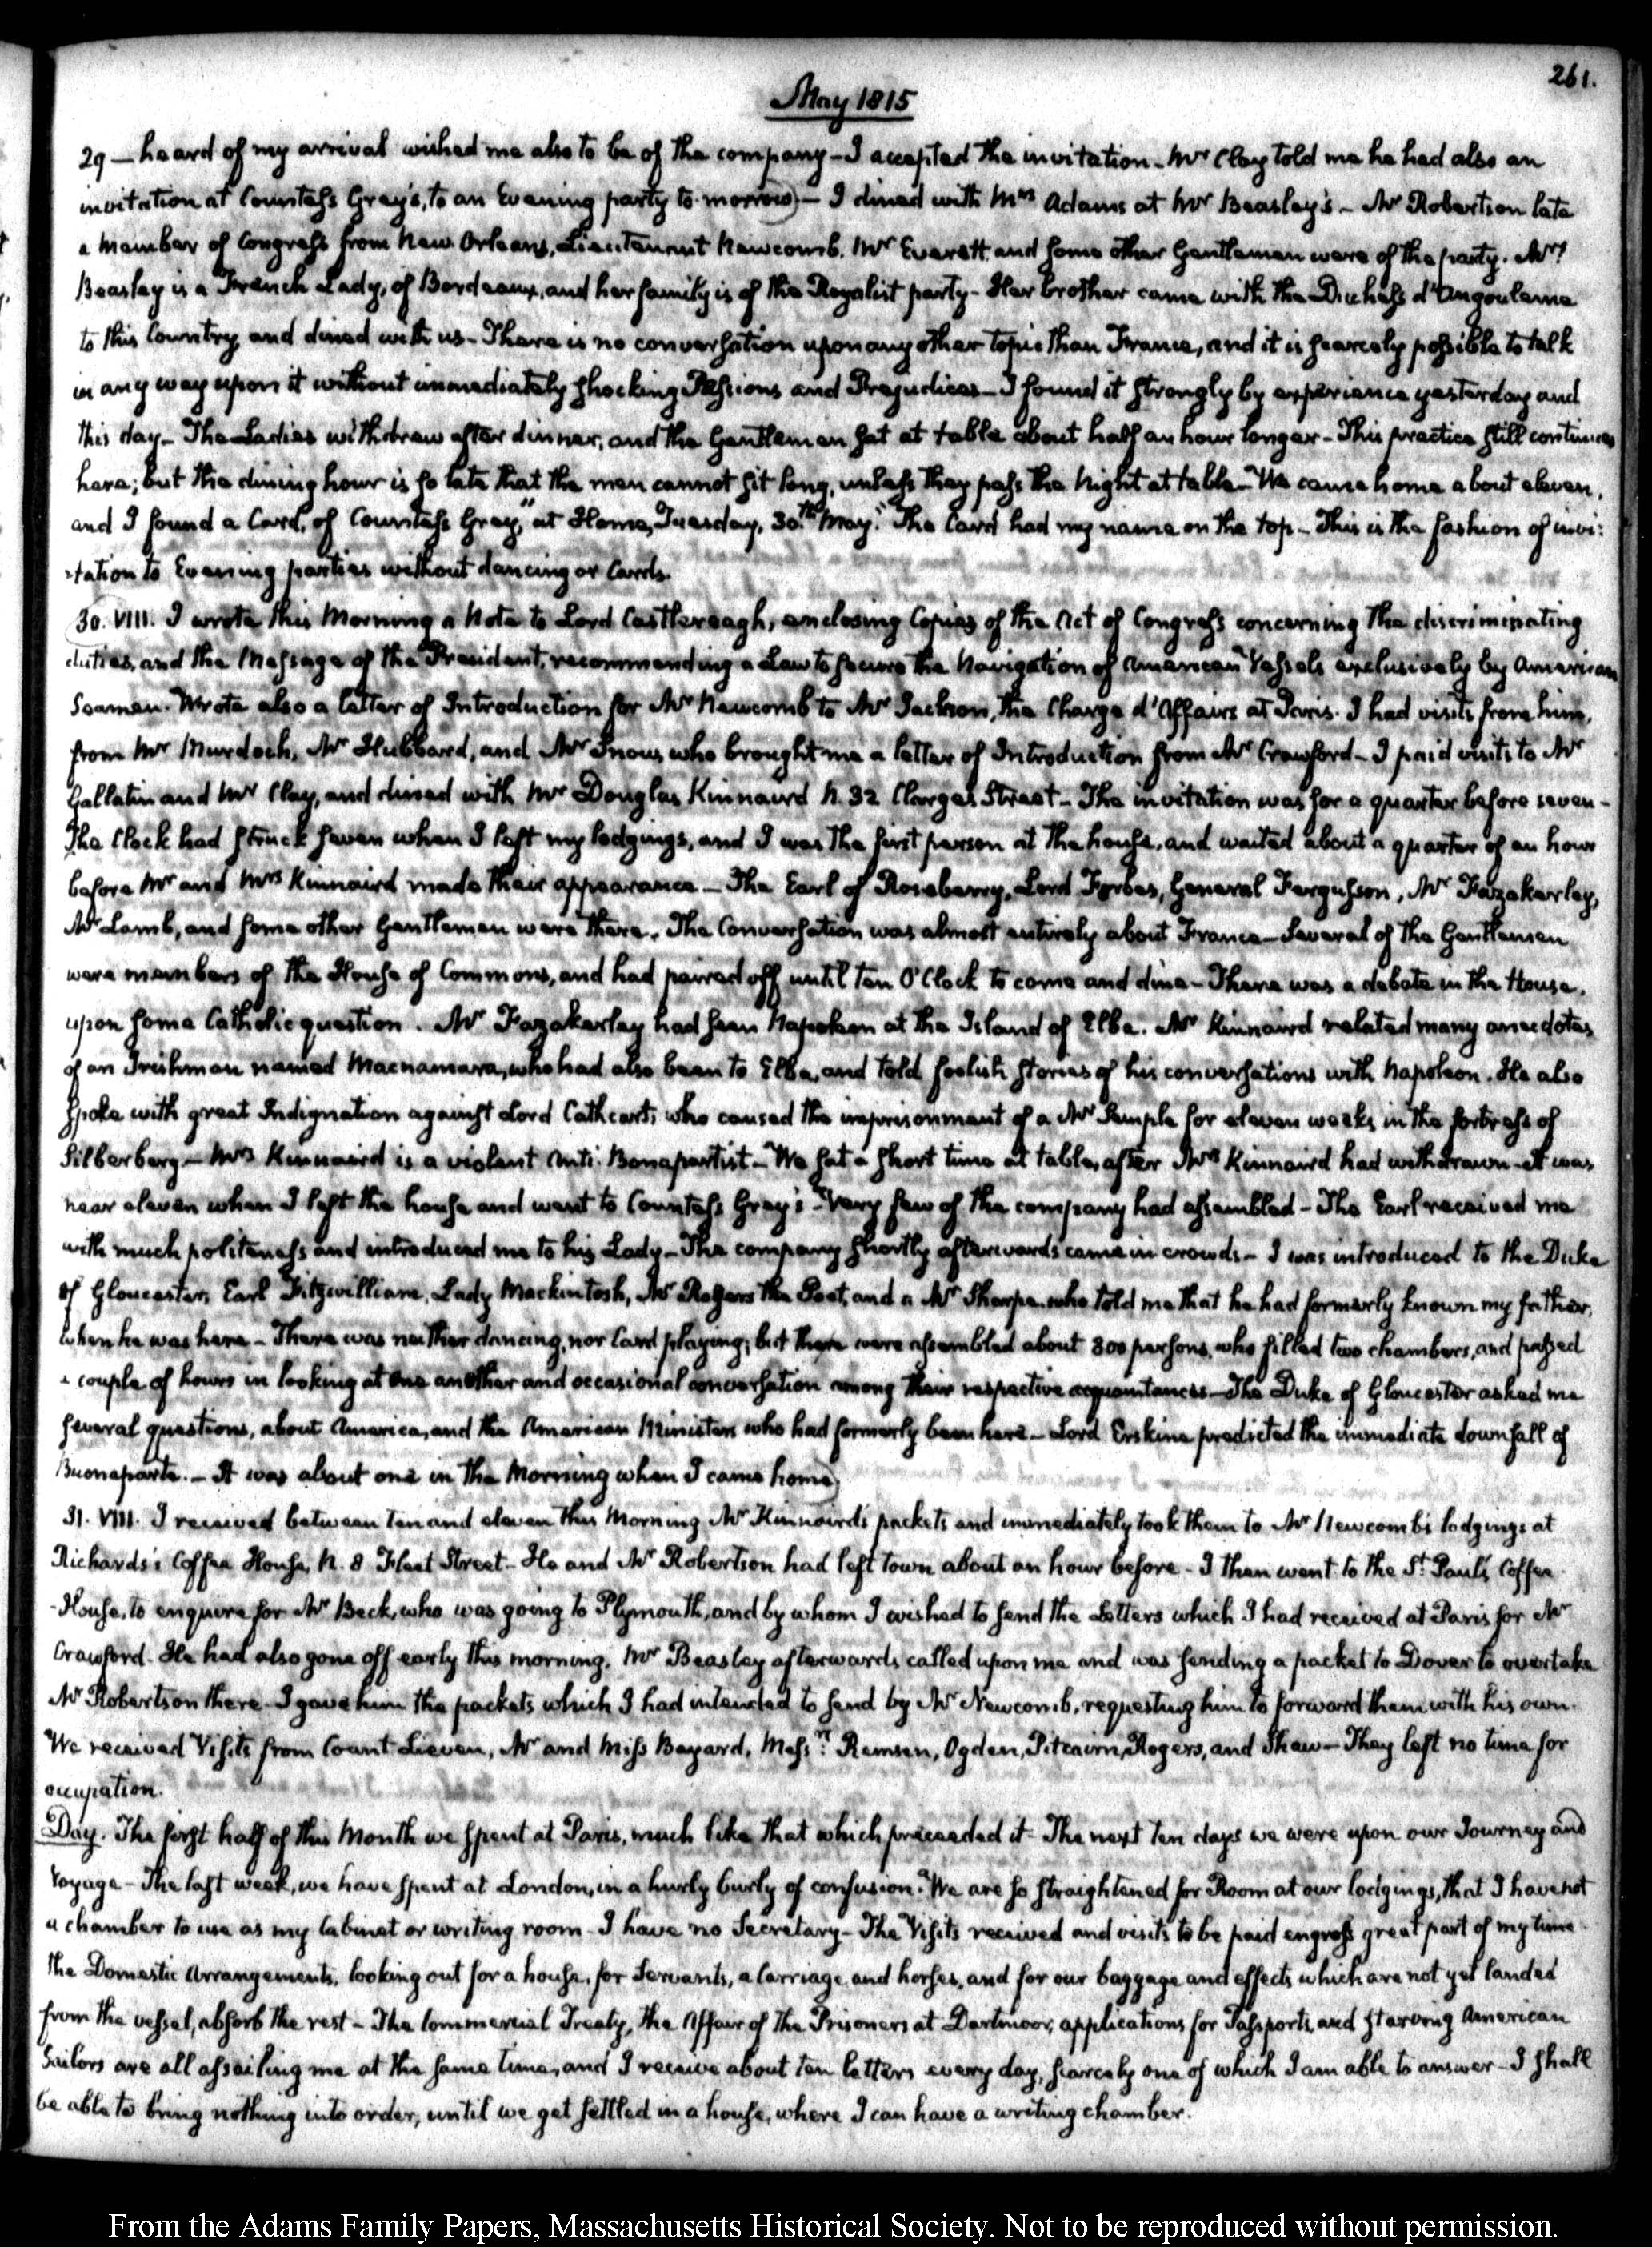 261.
May 1815
29 — heard of my arrival wished me also to be of the company - I accepted the invitation - Mr Clay told me he had also an
invitation at Countess Grey's, to an Evening party to-morrow) - I dined with Mrs Adams at Mr Beasley's - Mr Robertson late
a member of Congress from New Orleans, Lieutenant Newcomb, Mr Everett and some other Gentlemen were of the party. Mrs
Beasley is a French Lady, of Bordeaux, and her family is of the Royalist party - Her brother came with the Duchess d'Angouleme
to this Country and dined with us - There is no conversation upon any other topic than France, and it is scarcely possible to talk
in any way upon it without immediately shocking Passions and Prejudices - I found it strongly by experience yesterday and
this day - The Ladies withdrew after dinner, and the Gentlemen sat at table about half an hour longer - This practice still continues
here; but the dining hour is so late that the men cannot sit long, unless they pass the Night at table - We came home about eleven,
and I found a Card, of Countess Grey, "at Home, Tuesday, 30th May." The Card had my name on the top - This is the fashion of invi:
-tation to Evening parties without dancing or Cards.
30. VIII. I wrote this Morning a Note to Lord Castlereagh, enclosing Copies of the Act of Congress concerning the discriminating
duties, and the Message of the President, recommending a Law to secure the Navigation of American Vessels exclusively by American
Seamen. Wrote also a letter of Introduction for Mr Newcomb to Mr Jackson, the Chargé d'Affairs at Paris. I had visits from him,
from Mr Murdoch, Mr Hubbard, and Mr Snow, who brought me a letter of Introduction from Mr Crawford - I paid visits to Mr
Gallatin and Mr Clay, and dined with Mr Douglas Kinnaird N. 32 Clarges Street - The invitation was for a quarter before seven -
The Clock had struck seven when I left my lodgings, and I was the first person at the house, and waited about a quarter of an hour
before Mr and Mrs Kinnaird made their appearance - The Earl of Roseberry, Lord Forbes, General Fergusson, Mr Fazakerley,
Mr Lamb, and some other Gentlemen were there. The Conversation was almost entirely about France - Several of the Gentlemen
were members of the House of Commons, and had paired off until ten O'Clock to come and dine - There was a debate in the House,
upon some Catholic question. Mr Fazakerley had seen Napoleon at the Island of Elba. Mr Kinnaird related many anecdotes
of an Irishman named Macnamara, who had also been to Elba, and told foolish stories of his conversations with Napoleon. He also
spoke with great Indignation against Lord Cathcart, who caused the imprisonment of a Mr Semple for eleven weeks in the fortress of
Silberberg - Mrs Kinnaird is a violent Anti-Bonapartist - We sat a short time at table, after Mrs Kinnaird had withdrawn - it was
near eleven when I left the house and went to Countess Grey's - Very few of the company had assembled - The Earl received me
with much politeness and introduced me to his Lady - The company shortly afterwards came in crowds - I was introduced to the Duke
of Gloucester, Earl Fitzwilliam, Lady Mackintosh, Mr Rogers the Poet, and a Mr Sharpe, who told me that he had formerly known my father,
when he was here - There was neither dancing, nor Card playing; but there were assembled about 300 persons, who filled two chambers, and passed
a couple of hours in looking at one another and occasional conversation among their respective acquaintances - The Duke of Gloucester asked me
several questions, about America, and the American Ministers who had formerly been here - Lord Erskine predicted the immediate downfall of
Buonaparte. - It was about one in the Morning when I came home)
31. VIII. I received between ten and eleven this Morning Mr Kinnaird's packets and immediately took them to Mr Newcomb's lodgings at
Richards's Coffee House, N. 8 Fleet Street - He and Mr Robertson had left town about an hour before - I then went to the St Paul's Coffee
-House, to enquire for Mr Beck, who was going to Plymouth, and by whom I wished to send the Letters which I had received at Paris for Mr
Crawford. He had also gone off early this morning. Mr Beasley afterwards called upon me and was sending a packet to Dover to overtake
Mr Robertson there - I gave him the packets which I had intended to send by Mr Newcomb, requesting him to forward them with his own.
We received Visits from Count Lieven, Mr and Miss Bayard, Messrs Remsen, Ogden, Pitcairn, Rogers, and Shaw - They left no time for
occupation.
Day. The first half of this Month we spent at Paris, much like that which preceeded it - The next ten days we were upon our Journey and
Voyage - The last week, we have spent at London, in a hurly burly of confusion. We are so straightened for Room at our lodgings, that I have not
a chamber to use as my Cabinet or writing room - I have no Secretary - The Visits received and visits to be paid engross great part of my time
the Domestic Arrangements, looking out for a house, for Servants, a Carriage and horses, and for our baggage and effects which are not yet landed
from the vessel, absorb the rest - The Commercial Treaty, the Affair of the Prisoners at Dartmoor, applications for Passports, and starving American
Sailors are all assailing me at the same time, and I receive about ten letters every day, scarcely one of which I am able to answer - I shall
be able to bring nothing into order, until we get settled in a house, where I can have a writing chamber.
From the Adams Family Papers, Massachusetts Historical Society. Not to be reproduced without permission.